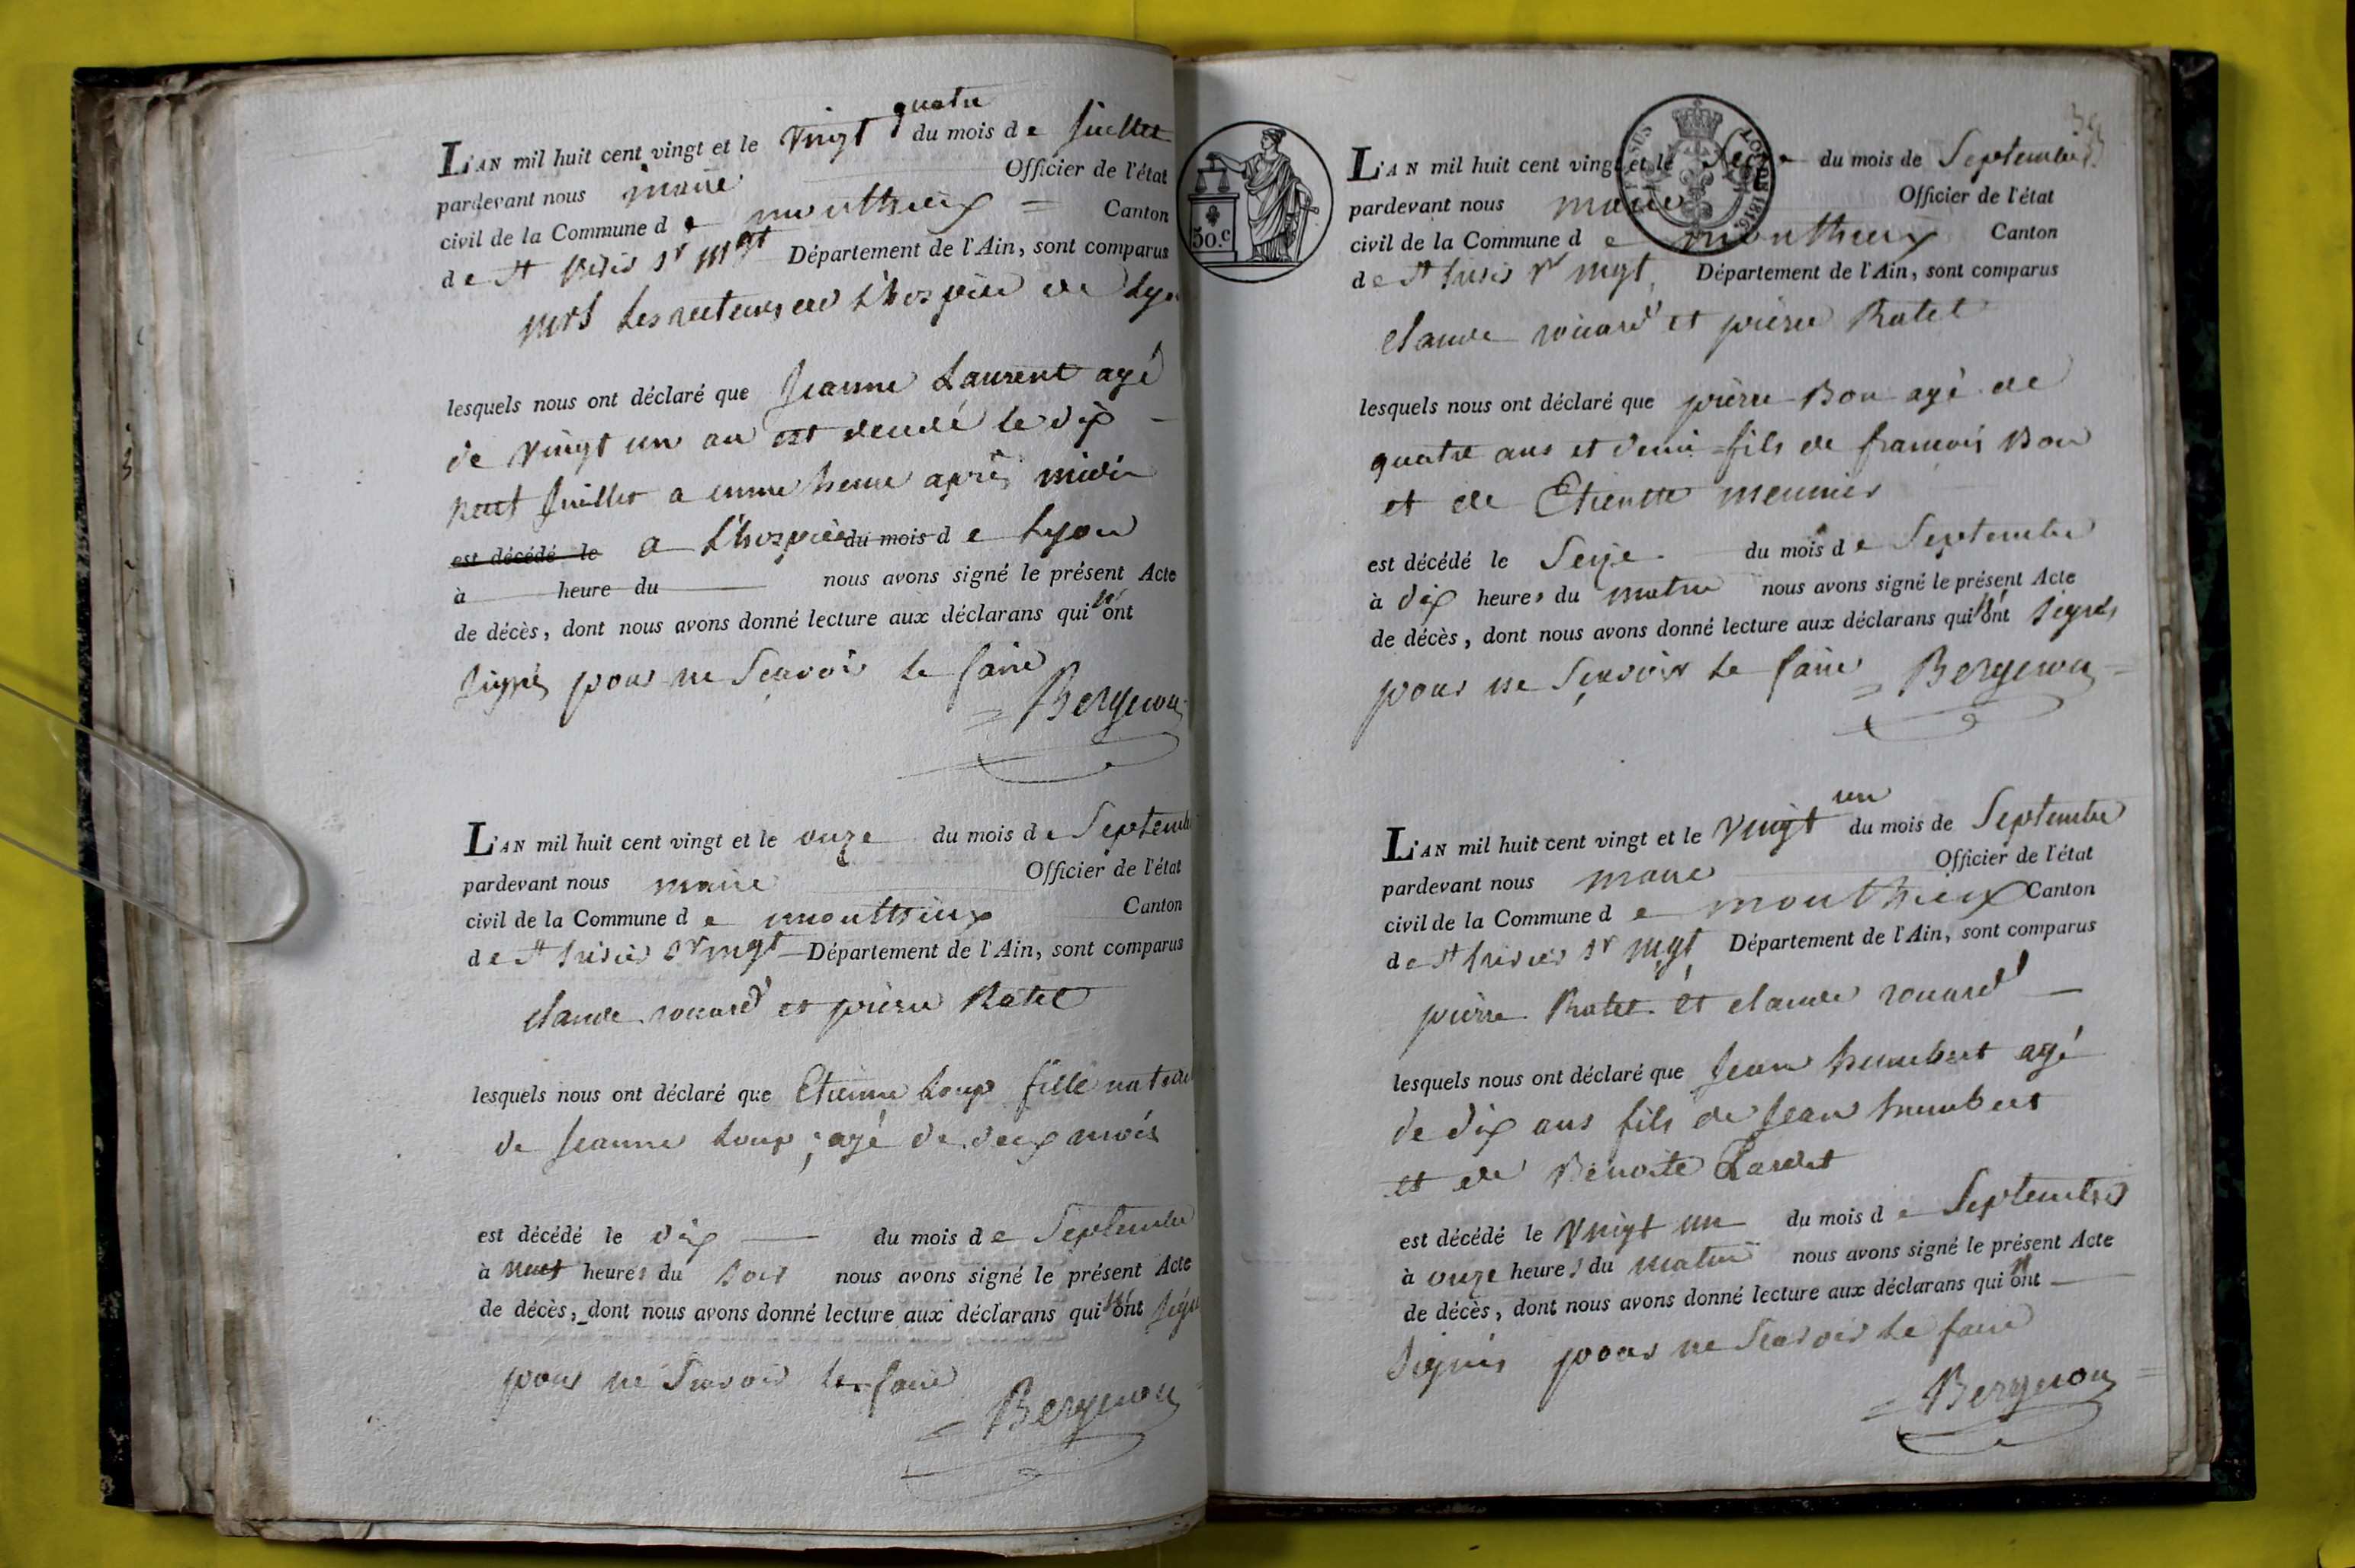 L'AN mil huit cent vingt et le vingt quatre du mois de Juillet
pardevant nous maire Officier de l'état
civil de la Commune de monthieux = Canton
de St trivier sr mgt Département de l'Ain, sont comparus
mrs Les recteurs de L'hospice de Lyon
lesquels nous ont déclaré que Jeanne Laurent agé
de vingt un an est decedé le dix
neuf Juillet a eunne heure après midi
est décédé le a L'hospice du mois de Lyon
à heure du nous avons signé le présent Acte
de décès, dont nous avons donné lecture aux déclarans qui n'ont
signés pour ne scavoir le faire
= Bergeron
L'AN mil huit cent vingt et le onze du mois de Septembre
pardevant nous maire Officier de l'état
civil de la Commune de monthieux Canton
de St trivier sr mgt Département de l'Ain, sont comparus
claude rouard et pierre Ratet
lesquels nous ont déclaré que Etienne Loup fille
de Jeanne Loup, agé de deux mois
est décédé le dix du mois de Septembre
à neuf heures du soir nous avons signé le présent Acte
de décès, dont nous avons donné lecture aux déclarans qui n'ont
pour ne scavoir le faire
= Bergeron
50.c
1816
L'AN mil huit cent vingt et le Seize du mois de Septembre
pardevant nous maire Officier de l'état
civil de la Commune de monthieux Canton
de St trivier sr mgt Département de l'Ain, sont comparus
claude rouard et pierre Ratet
lesquels nous ont déclaré que pierre Bon agé de
quatre ans et demi fils de francois Bon
et de Etienette meunier
est décédé le Seize du mois de Septembre
à dix heures du matin nous avons signé le présent Acte
de décès, dont nous avons donné lecture aux déclarans qui n'ont signés
pour ne scavoir le faire = Bergeron =
L'AN mil huit cent vingt et le vingt un du mois de Septembre
pardevant nous maire Officier de l'état
civil de la Commune de monthieux Canton
de St trivier sr mgt Département de l'Ain, sont comparus
pierre Ratet et claude rouard
lesquels nous ont déclaré que Jean humbert agé
de dix ans fils de Jean humbert
et de Benoite Lardet
est décédé le vingt un du mois de Septembre
à onze heures du matin nous avons signé le présent Acte
de décès, dont nous avons donné lecture aux déclarans qui n'ont
signés pour ne scavoir le faire
= Bergeron =